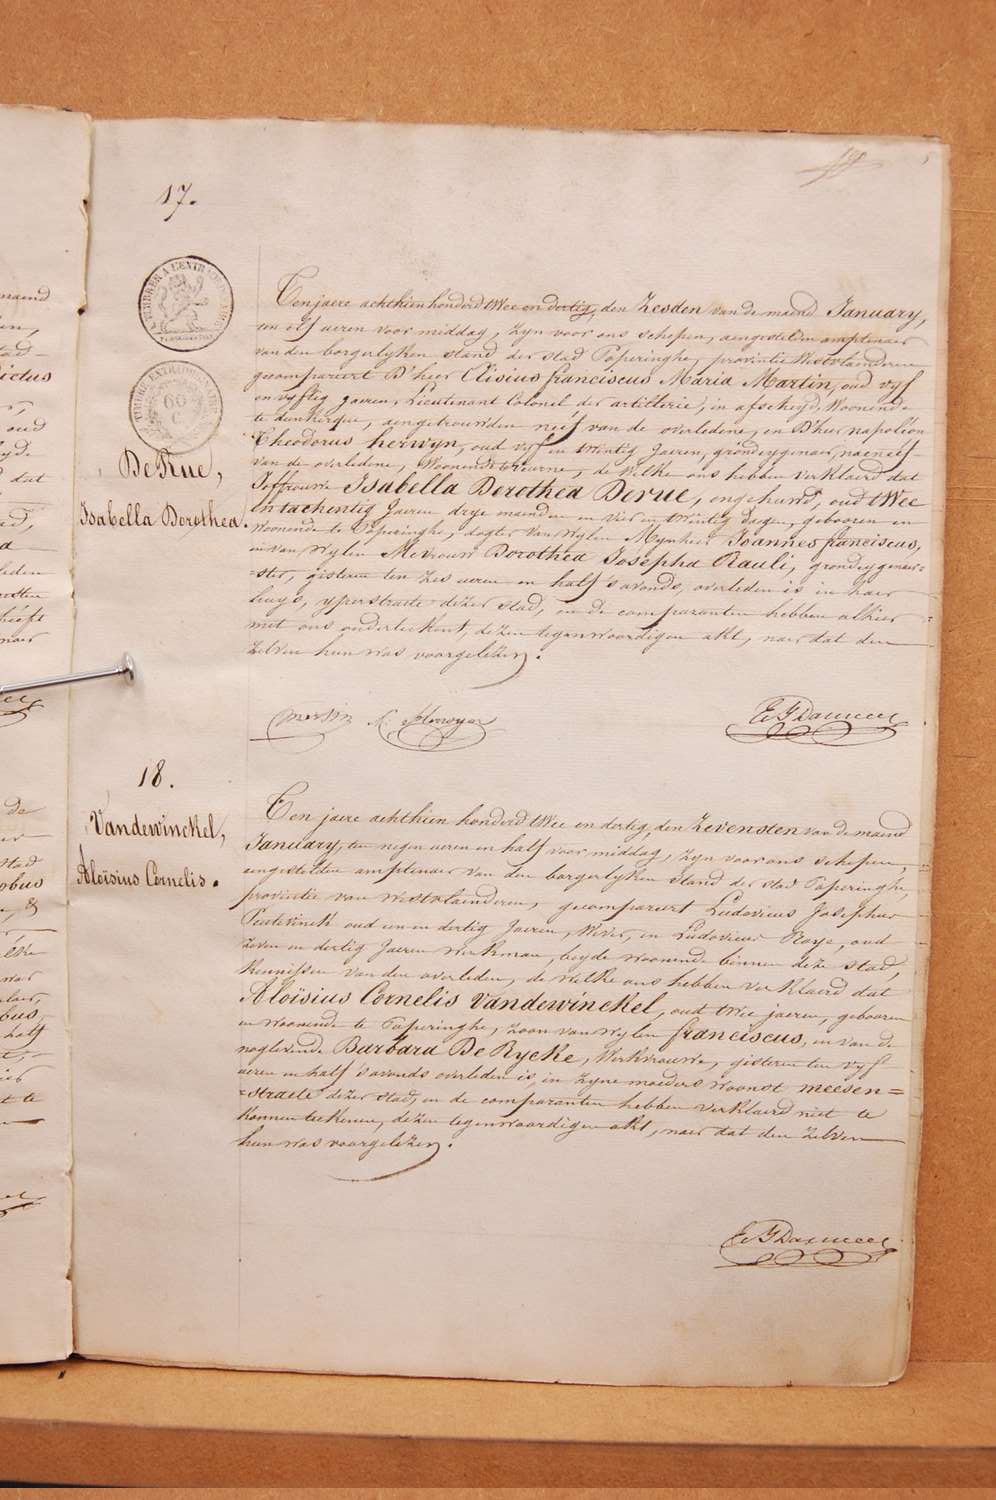 17.
De Rue,
Isabella Dorothea.
Ten jaere achthien honderd twee en dertig, den Zesden van de maend January,
ten elf ueren voor middag, zyn voor ons schepen, aengestelden amptenaer
van den borgerlyken stand der stad Poperinghe, provintie Westvlaenderen
gecompareert D'heer Aloisius franciscus Maria Martin, oud vyf
en vyftig jaeren, Lieutenant Colonel der artillerie, in afscheyd, Woonende
te dunkerque, aengetrouwden neef van de overledene, en D'heer napoleon
Theodorus herwyn, oud vyf en twintig Jaeren, grondeygenaer,
van de overledene, Woonende te veurne, de Welke ons hebben verklaerd dat
Jeffrouwe Isabella Dorothea Derue, ongehuwd, oud twee
en tachentig Jaeren drye maenden en vier en twintig dagen, gebooren en
Woonende te Poperinghe, dogter van Wylen Mynheer Joannes franciscus,
en van Wylen Mevrouw Dorothea Josepha Rauli, grondeygenaer=
=ster, gisteren ten zes ueren en half s'avonds, overleden is in haer
huys, yperstraete dezer stad, en de comparanten hebben alhier
met ons onderteekent, dezen tegenwoordigen akt, naer dat den
zelven hun was voorgelezen.
Martin N. herwyn
18.
Vandewinckel,
Aloïsius Cornelis.
Ten jaere achthien honderd twee en dertig, den Zevensten van de maend
January, ten negen ueren en half voor middag, zyn voor ons schepen,
aengestelden amptenaer van den borgerlyken stand der stad Poperinghe,
provintie van Westvlaenderen, gecompareert Ludovicus Josephus
oud een en dertig Jaeren, Wever, en Ludovicus Roye, oud
zeven en dertig Jaeren Werkman, beyde woonende binnen deze stad,
kennissen van den overleden, de welke ons hebben verklaerd dat
Aloïsius Cornelis Vandewinckel, oud twee jaeren, gebooren
en woonende te Poperinghe, zoon van Wylen franciscus, en van de
noglevende Barbara De Rycke, Werkvrouwe, gisteren ten vyf
ueren en half s'avonds overleden is, in zyne moeders woonst meesen=
=straete dezer stad, en de comparanten hebben verklaerd niet te
konnen teekenen, dezen tegenwoordigen akt, naer dat den zelven
hun was voorgelezen.